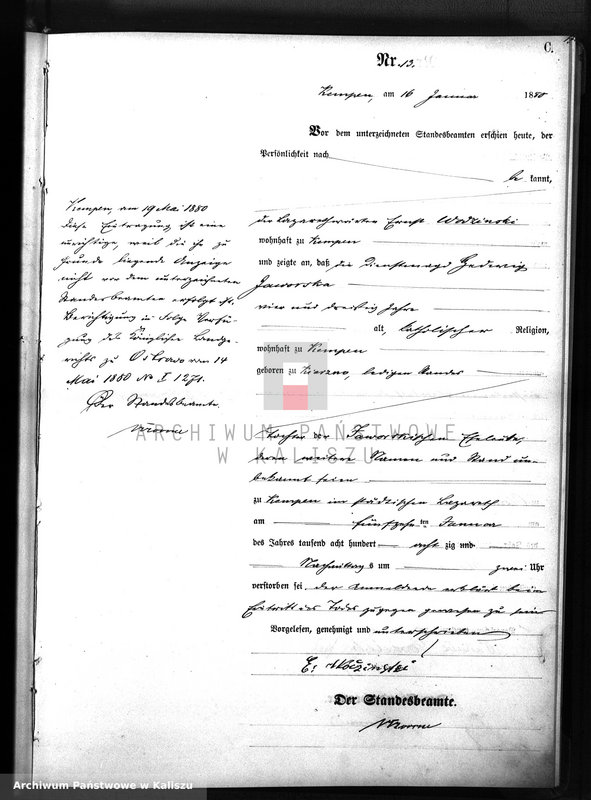 C.
Nr. 13.
Kempen, am 16 Januar 1880
Vor dem unterzeichneten Standesbeamten erschien heute, der
Persönlichkeit nach
be kannt,
der Lazarethwärter Ernst Wodzinski
wohnhaft zu Kempen
und zeigte an, daß die Dienstmagd Hedwig
Jaworska
vier und dreißig Jahre
alt, katholischer Religion,
wohnhaft zu Kempen
geboren zu ledigen Standes
Tochter der Jaworskischen Eheleute,
deren weitere Namen und Stand un-
bekannt seien
zu Kempen im städtischen Lazareth
am fünfzehnten Januar
des Jahres tausend acht hundert acht zig und
Nachmittags um zwei Uhr
verstorben sei, der Anmeldende erklärt beim
Eintritt des Todes zugegen gewesen zu sein
Vorgelesen, genehmigt und unterschrieben
E.
Der Standesbeamte.
Kempen, am 19 Mai 1880
Diese Eintragung ist eine
unrichtige, weil die ihr zu
Grunde liegende Anzeige
nicht vor dem unterzeichneten
Standesbeamten erfolgt ist.
Berichtigung in Folge Verfü-
gung des Königlichen Landge-
richts zu Ostrowo vom 14
Mai 1880 No I 1271.
Der Standesbeamte.
ARCHIWUM PAŃSTWOWE
W KALISZU
Archiwum Państwowe w Kaliszu